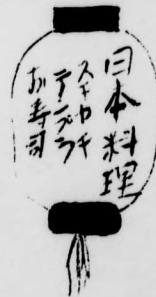 日本料理
スキヤキ
テンプラ
お寿司